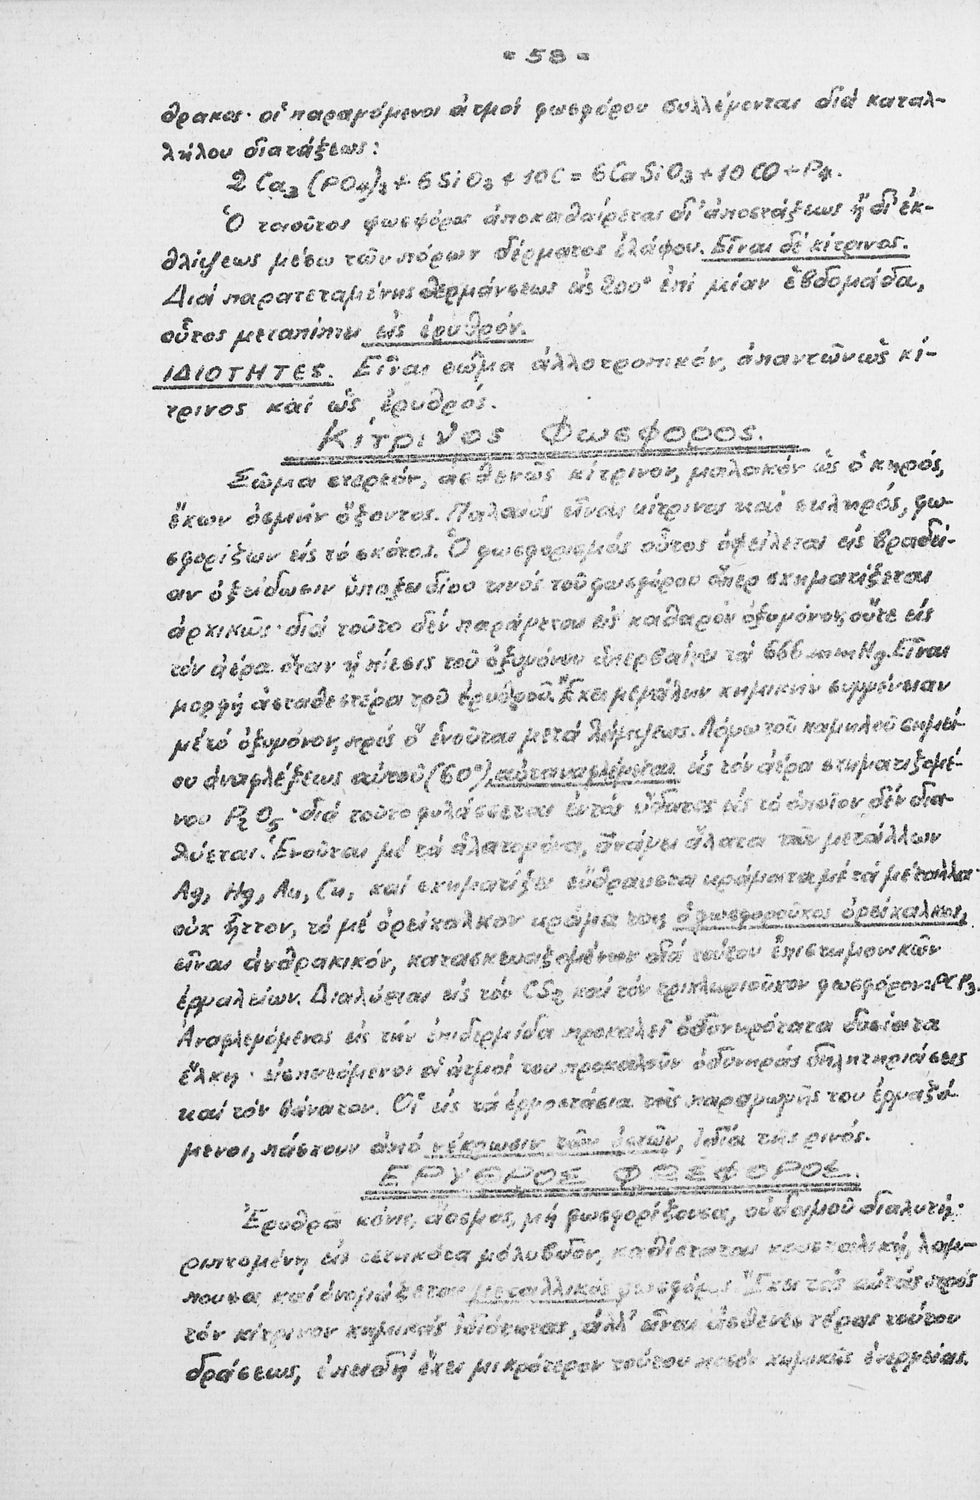 - 58 -
θρακος· οἱ παραγόμενοι ἀτμοί φωσφόρου συλλέγονται διά καταλ-
λήλου διατάξεως:
2 Ca₃ (PO₄)₂ + 6 SiO₂ + 10C = 6CaSiO₃ + 10 CO + P₄.
Ὁ τοιοῦτος φωσφόρος ἀποκαθαίρεται δι' ἀποστάξεως ἤ δι' ἐκ-
θλίψεως μέσω τῶν πόρων δέρματος ἐλάφου. Εἶναι δέ κίτρινος.
Διά παρατεταμένης θερμάνσεως εἰς 200° ἐπί μίαν ἑβδομάδα,
οὗτος μεταπίπτει εἰς ἐρυθρόν.
ΙΔΙΟΤΗΤΕΣ. Εἶναι σῶμα ἀλλοτροπικόν, ἀπαντῶν ὡς κί-
τρινος καί ὡς ἐρυθρός.
Κίτρινος Φωσφορος.
Σῶμα στερεόν, ἀσθενῶς κίτρινον, μαλακόν ὡς ὁ κηρός,
ἔχων ὀσμήν ὄζοντος. Παλαιός εἶναι κίτρινος καί σκληρός, φω-
σφορίζων εἰς τό σκότος. Ὁ φωσφορισμός οὗτος ὀφείλεται εἰς βραδεῖ-
αν ὀξείδωσιν ὑποξειδίου τινός τοῦ φωσφόρου ὅπερ σχηματίζεται
ἀρχικῶς· διά τοῦτο δέν παράγεται εἰς καθαρόν ὀξυγόνον, οὔτε εἰς
τόν ἀέρα ὅταν ἡ πίεσις τοῦ ὀξυγόνου ὑπερβαίνει τά 666 mm Hg. Εἶναι
μορφή ἀσταθεστέρα τοῦ ἐρυθροῦ. Ἔχει μεγάλην χημικήν συγγένειαν
μέ τό ὀξυγόνον, πρός ὅ ἑνοῦται μετά λάμψεως. Λόγω τοῦ χαμηλοῦ σημεί-
ου ἀναφλέξεως αὐτοῦ (60°), αὐταναφλέγεται εἰς τόν ἀέρα σχηματιζομέ-
νου P₂O₅· διά τοῦτο φυλάσσεται ἐντός ὕδατος εἰς τό ὁποῖον δέν δια-
λύεται. Ἑνοῦται μέ τά ἁλατογόνα, ἀνάγει ἅλατα τῶν μετάλλων
Ag, Hg, Au, Cu, καί σχηματίζει εὔθραυστα κράματα μέ τά μέταλλα·
οὐχ ἧττον, τό μέ ὀρείχαλκον κράμα του, ὁ φωσφοροῦχος ὀρείχαλκος,
εἶναι ἀνθρακικόν, κατασκευαζομένων διά τούτου ἐπιστημονικῶν
ἐργαλείων. Διαλύεται εἰς τόν CS₂ καί τόν τριχλωριοῦχον φωσφόρον: PCl₃.
Ἀναφλεγόμενος εἰς τήν ἐπιδερμίδα προκαλεῖ ὀδυνηρότατα δυσίατα
ἕλκη· εἰσπνεόμενοι οἱ ἀτμοί του προκαλοῦν ὀδυνηράς δηλητηριάσεις
καί τόν θάνατον. Οἱ εἰς τά ἐργοστάσια τῆς παραγωγῆς του ἐργαζό-
μενοι, πάσχουν ἀπό νέκρωσιν τῶν ὀστῶν, ἰδία τῆς ρινός.
ΕΡΥΘΡΟΣ ΦΩΣΦΟΡΟΣ.
Ἐρυθρά κόνις, ἄοσμος, μή φωσφορίζουσα, οὐδαμοῦ διαλυτή·
ριπτομένη εἰς τετηκότα μόλυβδον, καθίσταται κρυσταλλική, λάμ-
πουσα καί ὀνομάζεται μεταλλικός φωσφόρος. Ἔχει τάς αὐτάς πρός
τόν κίτρινον χημικάς ἰδιότητας, ἀλλ' εἶναι ἀσθενεστέρας τούτου
δράσεως, ἐπειδή ἔχει μικρότερον τούτου ποσόν χημικῆς ἐνεργείας.